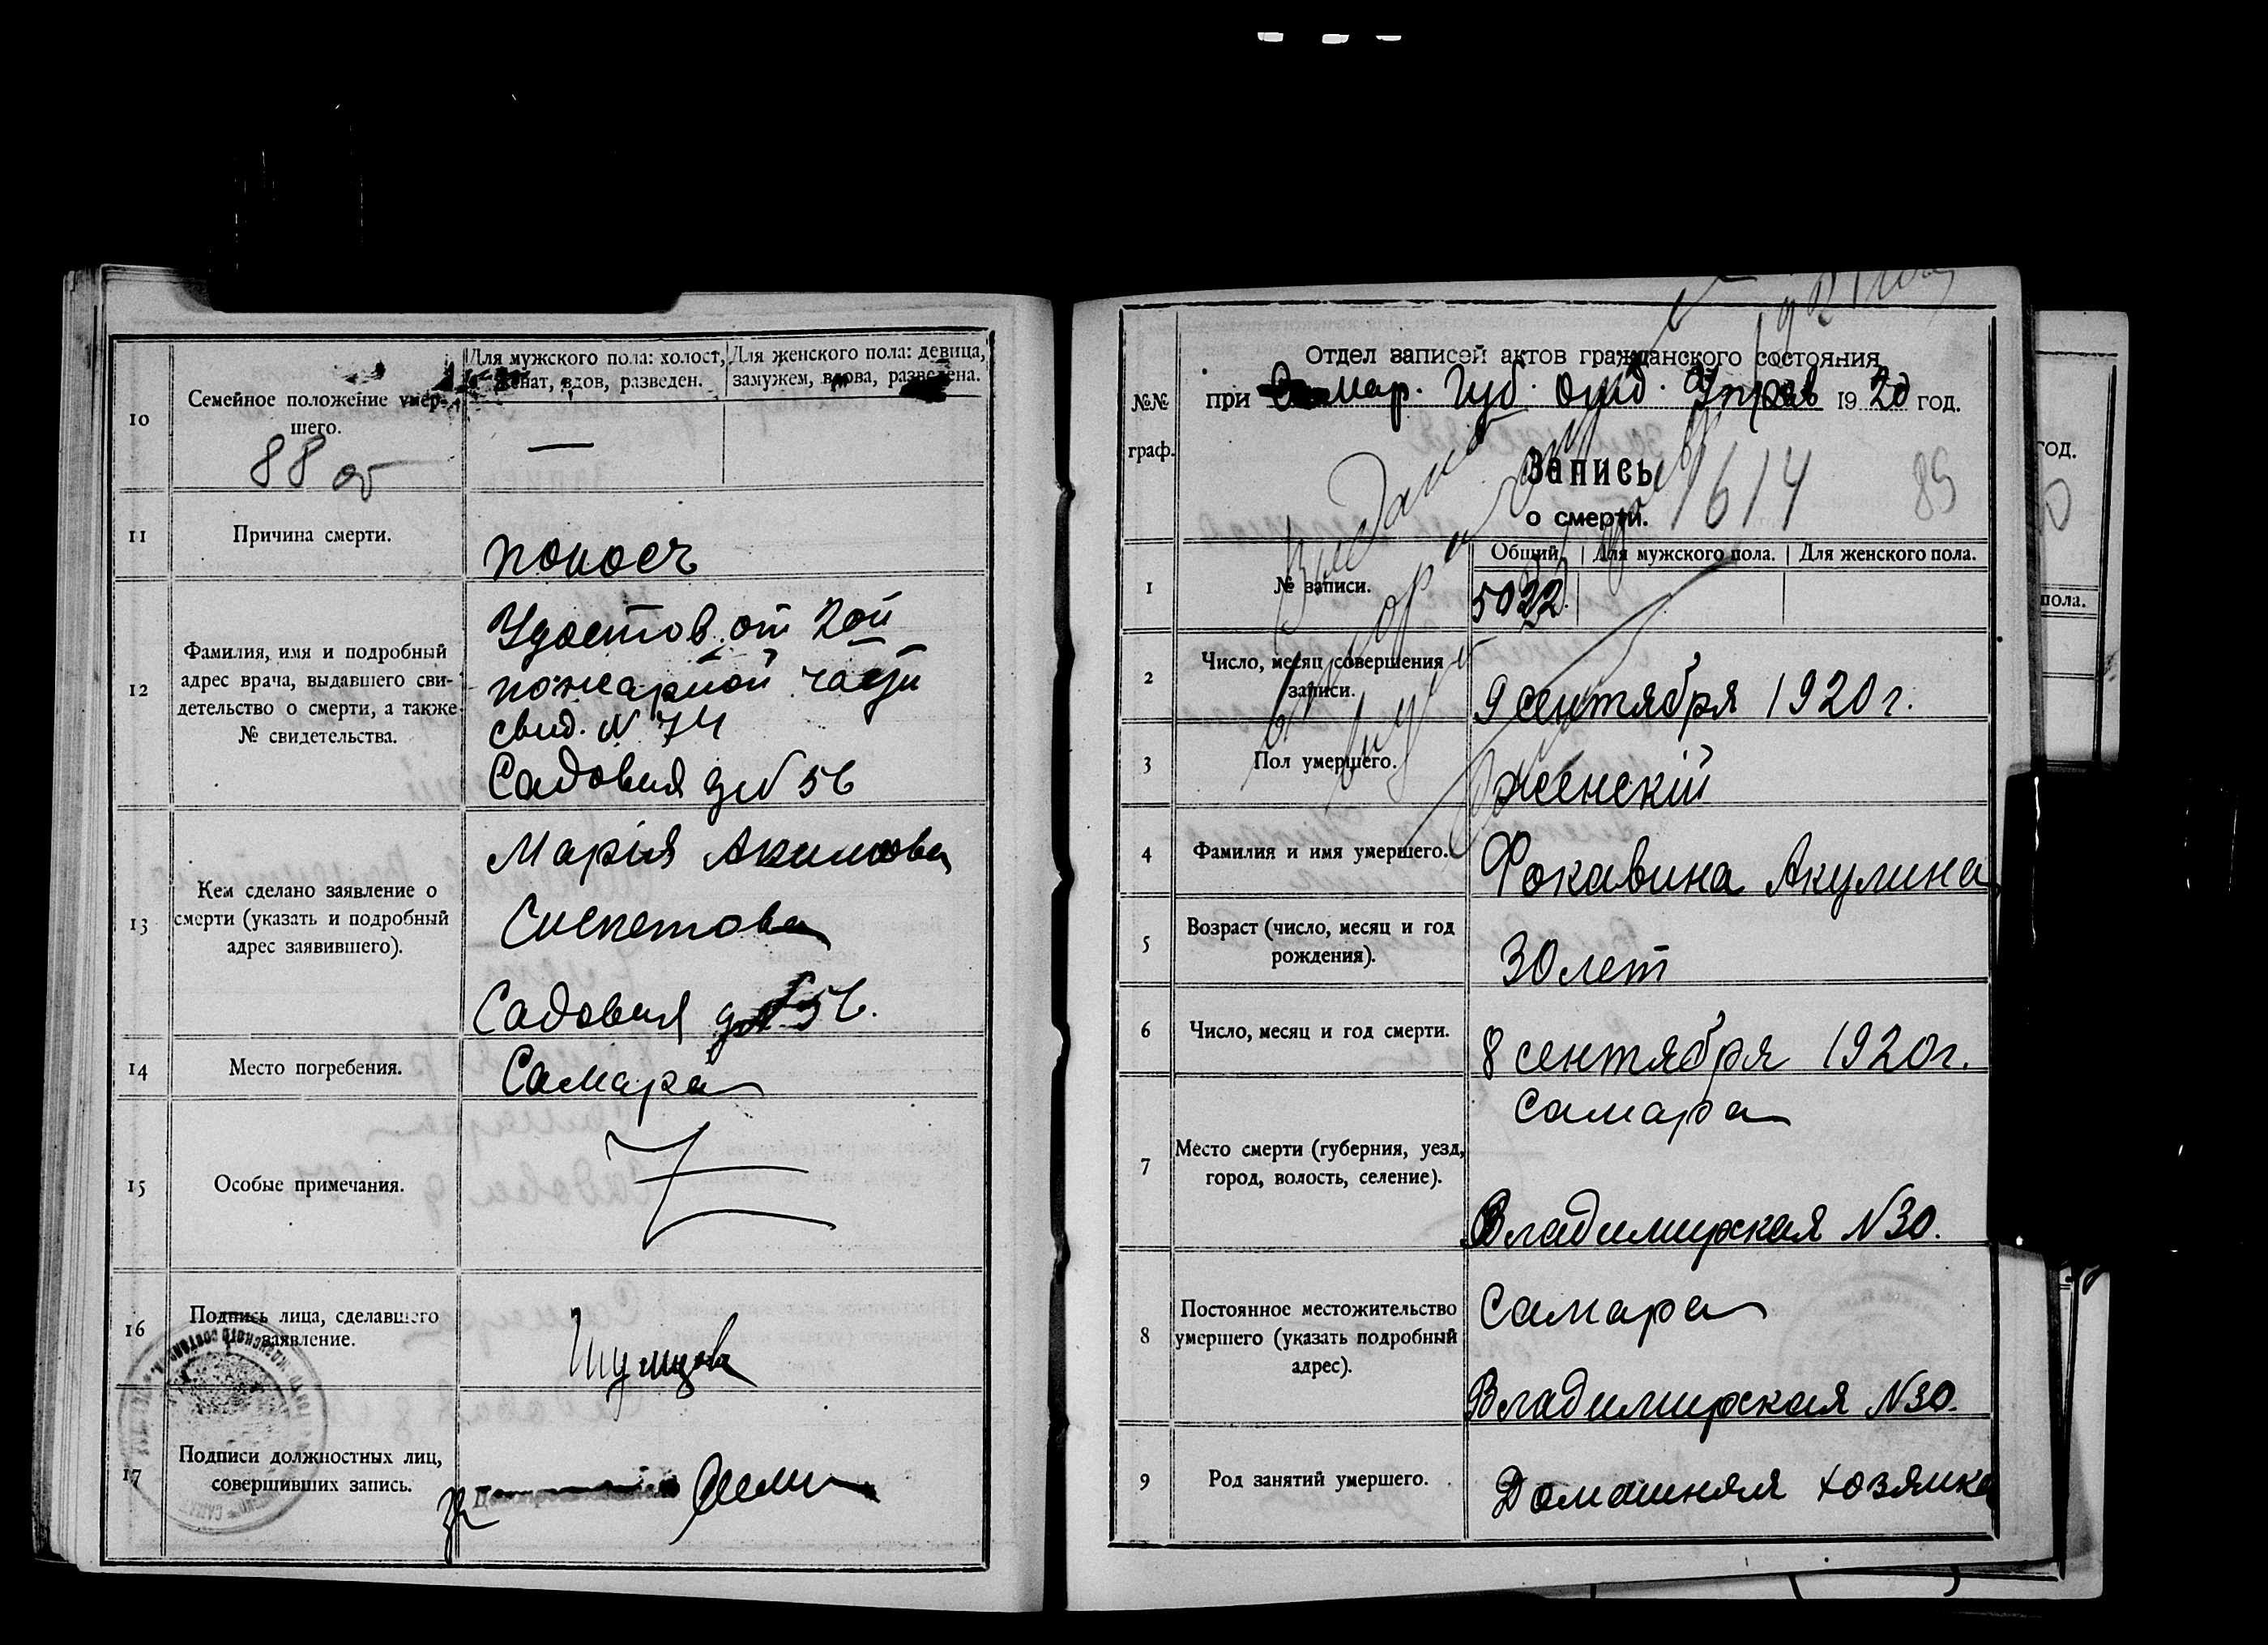 10
Семейное положение умер-
шего.
88 об
Для мужского пола: холост,
женат, вдов, разведен.
Для женского пола: девица,
замужем, вдова, разведена.
—
11
Причина смерти.
поносъ
12
Фамилия, имя и подробный
адрес врача, выдавшего сви-
детельство о смерти, а также
№ свидетельства.
Удостов. от 2ой
пожарной части
свид. N 74
Садовая 56
13
Кем сделано заявление о
смерти (указать и подробный
адрес заявившего).
Марія Акимова
Садовая 56.
14
Место погребения.
Самара
15
Особые примечания.
16
Подпись лица, сделавшего
заявление.
17
Подписи должностных лиц,
совершивших запись.
№№
граф.
Отдел записей актов гражданского состояния
при Самар. Губ. отд. Управ 1920 год.
Запись
о смерти.
1614
89
1
№ записи.
Общий.
Для мужского пола.
Для женского пола.
5022.
2
Число, месяц совершения
записи.
9 сентября 1920 г.
3
Пол умершего.
женскій
4
Фамилия и имя умершего.
Фокавина Акулина
5
Возраст (число, месяц и год
рождения).
30 лет
6
Число, месяц и год смерти.
8 сентября 1920 г.
7
Место смерти (губерния, уезд,
город, волость, селение).
Самара
Владимирская N 30.
8
Постоянное местожительство
умершего (указать подробный
адрес).
Самара
Владимирская N 30.
9
Род занятий умершего.
Домашняя хозяйка
год.
пола.